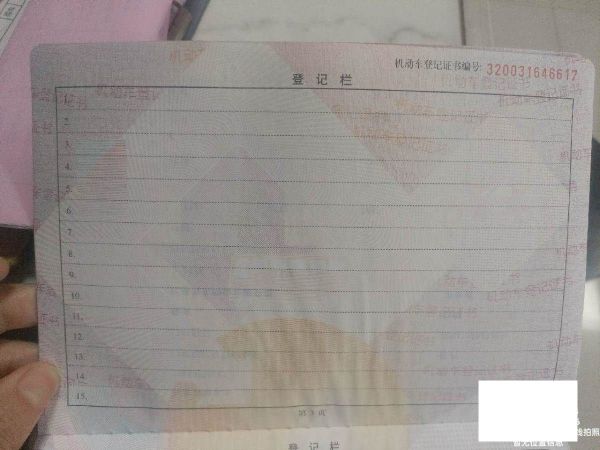 机动车登记证书编号: 320031646617
登 记 栏
1.
2.
3.
4.
5.
6.
7.
8.
9.
10.
11.
12.
13.
14.
15.
第 3 页
登 记 栏
线拍照
暂无位置信息